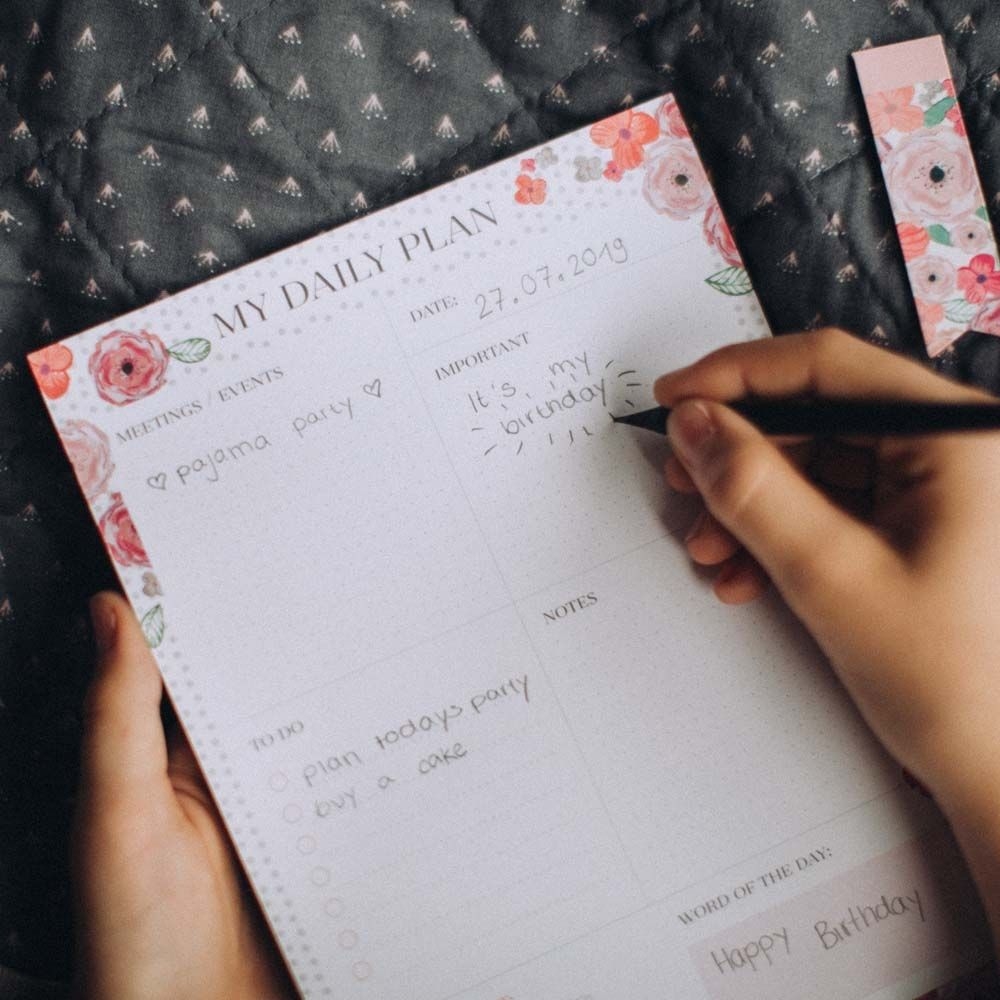 MY DAILY PLAN
DATE: 27.07.2019
MEETINGS / EVENTS
♡ pajama party ♡
IMPORTANT
It's my
birthday
TO DO
plan todays party
buy a cake
NOTES
WORD OF THE DAY:
Happy Birthday